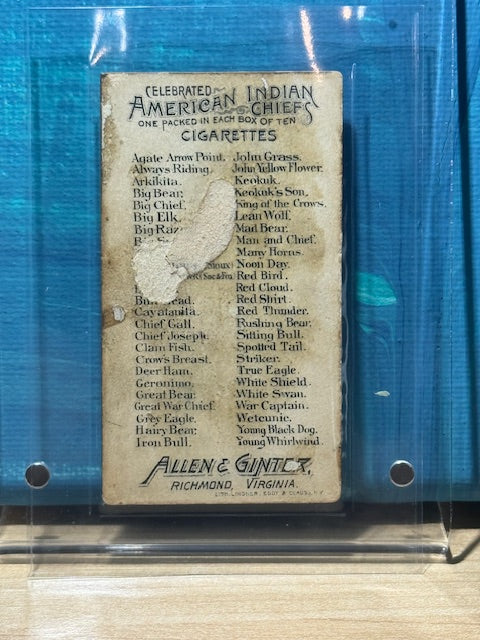 CELEBRATED
AMERICAN INDIAN
CHIEFS
ONE PACKED IN EACH BOX OF TEN
CIGARETTES
Agate Arrow Point.
Always Riding.
Arkikita.
Big Bear.
Big Chief.
Big Elk.
Big Raz
Big
Sioux)
Sac & Fox
Bull Head.
Cayatanita.
Chief Gall.
Chief Joseph.
Clam Fish.
Crow's Breast.
Deer Ham.
Geronimo.
Great Bear.
Great War Chief.
Grey Eagle.
Hairy Bear.
Iron Bull.
John Grass.
John Yellow Flower.
Keokuk.
Keokuk's Son.
King of the Crows.
Lean Wolf.
Mad Bear.
Man and Chief.
Many Horns.
Noon Day.
Red Bird.
Red Cloud.
Red Shirt.
Red Thunder.
Rushing Bear.
Sitting Bull.
Spotted Tail.
Striker.
True Eagle.
White Shield.
White Swan.
War Captain.
Wetcunie.
Young Black Dog.
Young Whirlwind.
ALLEN & GINTER,
RICHMOND, VIRGINIA.
LITH. LINDNER, EDDY & CLAUSS, N.Y.